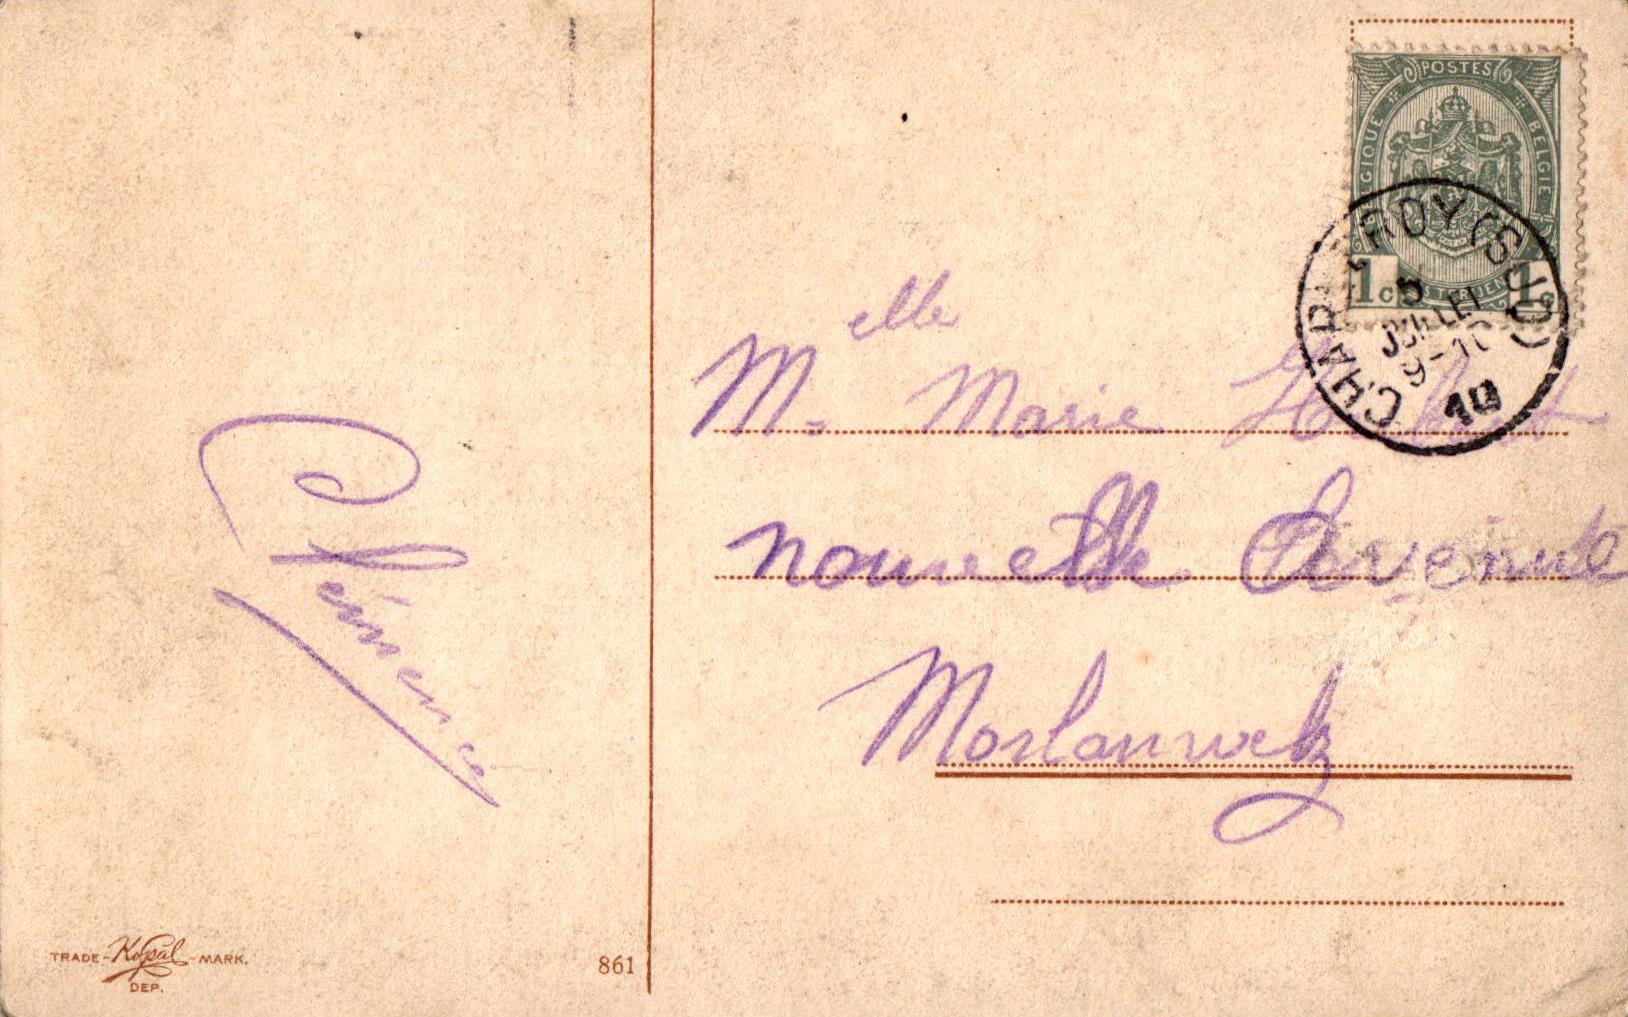 Clémence
TRADE - Kopal - MARK.
DEP.
861
POSTES
BELGIQUE BELGIE
1c 1c
CHARLEROY (SUD)
5
JUILLET
9-10
10
Melle Marie
nouvelle Avenue
Morlanwelz